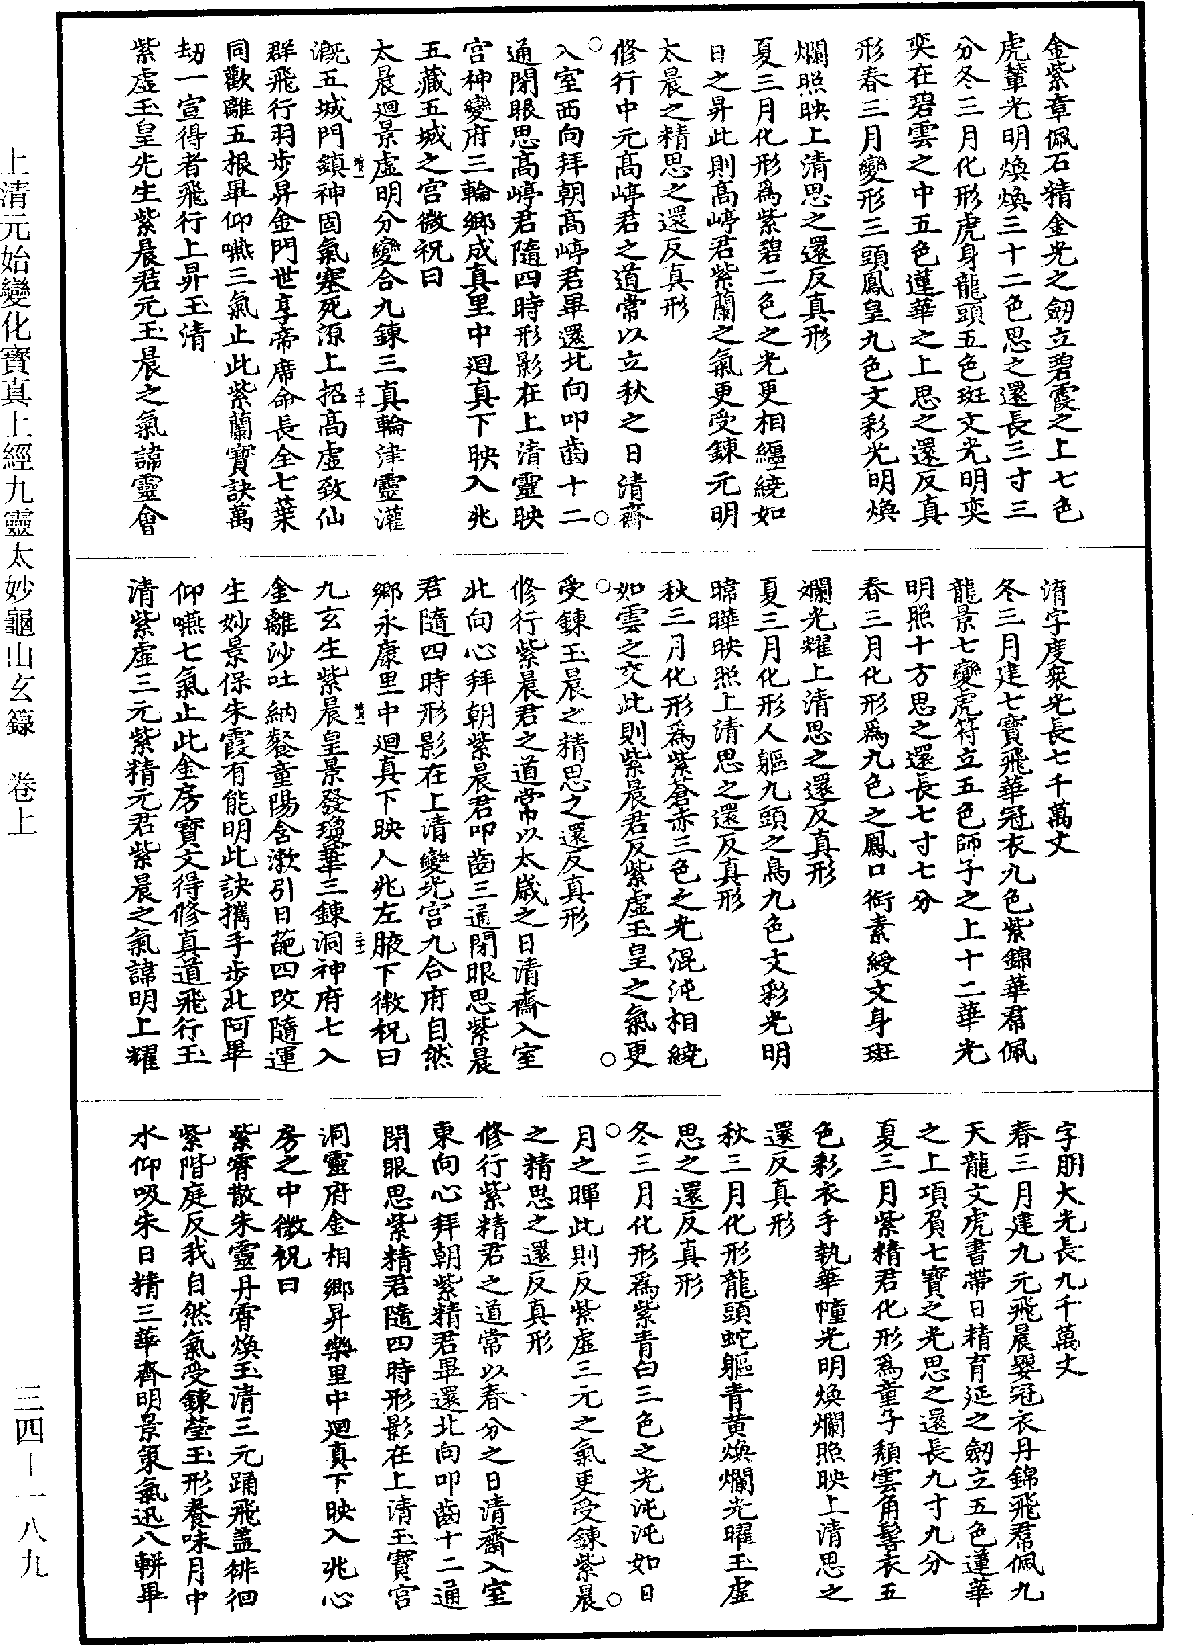 金紫章佩石精金光之劒立碧霞之上七色
虎輦光明煥煥三十二色思之還長三寸三
分冬三月化形虎身龍頭五色斑文光明奕
奕在碧雲之中五色蓮華之上思之還反真
形春三月變形三頭鳳皇九色文彩光明煥
爛照映上清思之還反真形
夏三月化形爲紫碧二色之光更相纏繞如
日之昇此則高崢君紫蘭之氣更受鍊元明
太晨之精思之還反真形
修行中元高崢君之道常以立秋之日清齋
入室西向拜朝高崢君畢還北向叩齒十二
通閉眼思高崢君隨四時形影在上清靈映
宮神變府三輪鄉成真里中迴真下映入兆
五藏五城之宮微祝曰
太晨迴景虛明分變合九鍊三真輪津靈灌
溉五城門鎮神固氣塞死源上招高虛致仙
群飛行羽步昇金門世享帝席命長全七葉
同歡離五根畢仰嚥三氣止此紫蘭寶訣萬
劫一宣得者飛行上昇玉清
紫虛玉皇先生紫晨君元玉晨之氣諱靈會
清字度衆光長七千萬丈
冬三月建七寶飛華冠衣九色紫錦華帬佩
龍景七變虎符立五色師子之上十二華光
明照十方思之還長七寸七分
春三月化形爲九色之鳳口銜素綬文身斑
爛光耀上清思之還反真形
夏三月化形人軀九頭之鳥九色文彩光明
暐曄映照上清思之還反真形
秋三月化形爲紫蒼赤三色之光混沌相繞
如雲之交此則紫晨君反紫虛玉皇之氣更
受鍊玉晨之精思之還反真形
修行紫晨君之道常以太歲之日清齋入室
北向心拜朝紫晨君叩齒三通閉眼思紫晨
君隨四時形影在上清變光宮九合府自然
鄉永康里中迴真下映入兆左腋下微祝曰
九玄生紫晨皇景發瓊華三鍊洞神府七入
金離沙吐納餐童陽含漱引日葩四攺隨運
生妙景保朱霞有能明此訣擕手步北阿畢
仰嚥七氣止此金房寶文得修真道飛行玉
清紫虛三元紫精元君紫晨之氣諱明上耀
字朋大光長九千萬丈
春三月建九元飛晨嬰冠衣丹錦飛帬佩九
天龍文虎書帶日精育延之劒立五色蓮華
之上項負七寶之光思之還長九寸九分
夏三月紫精君化形爲童子頹雲角髻衣五
色彩衣手執華幢光明煥爛照映上清思之
還反真形
秋三月化形龍頭蛇軀青黄煥爛光曜玉虛
思之還反真形
冬三月化形爲紫青白三色之光沌沌如日
月之暉此則反紫虛三元之氣更受鍊紫晨
之精思之還反真形
修行紫精君之道常以春分之日清齋入室
東向心拜朝紫精君畢還北向叩齒十二通
閉眼思紫精君隨四時形影在上清玉寶宮
洞靈府金相鄉昇樂里中迴真下映入兆心
房之中微祝曰
紫霄散朱靈丹霄煥玉清三元踊飛蓋徘徊
紫階庭反我自然氣受鍊瑩玉形養味月中
水仰吸朱日精三華齊明景策氣迅八輧畢
上清元始變化寶真上經九靈太妙龜山玄籙　卷上
三四－一八九